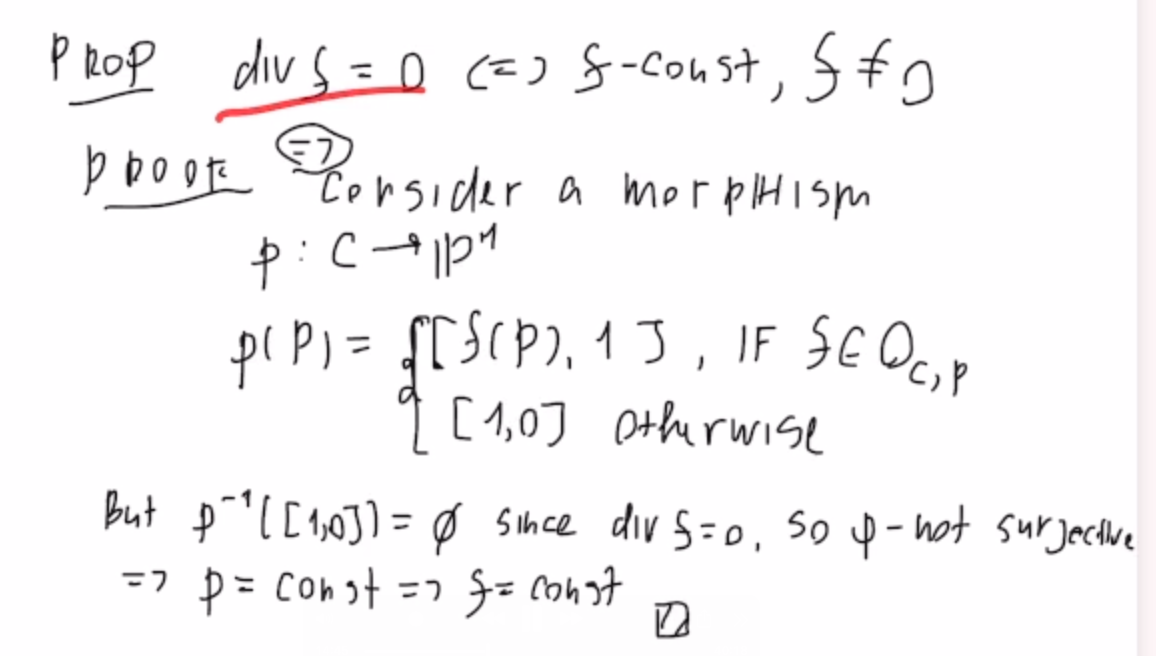 PROP div f = 0 <=> f-const, f ≠ 0
PROOF =>
Consider a morpHism
p : C → ℙ¹
p(P) = { [f(P), 1], IF f ∈ O_{C,P}
[1,0] otherwise
But p⁻¹([1,0]) = ∅ since div f=0, so p-not surjective
=> p = const => f = const □